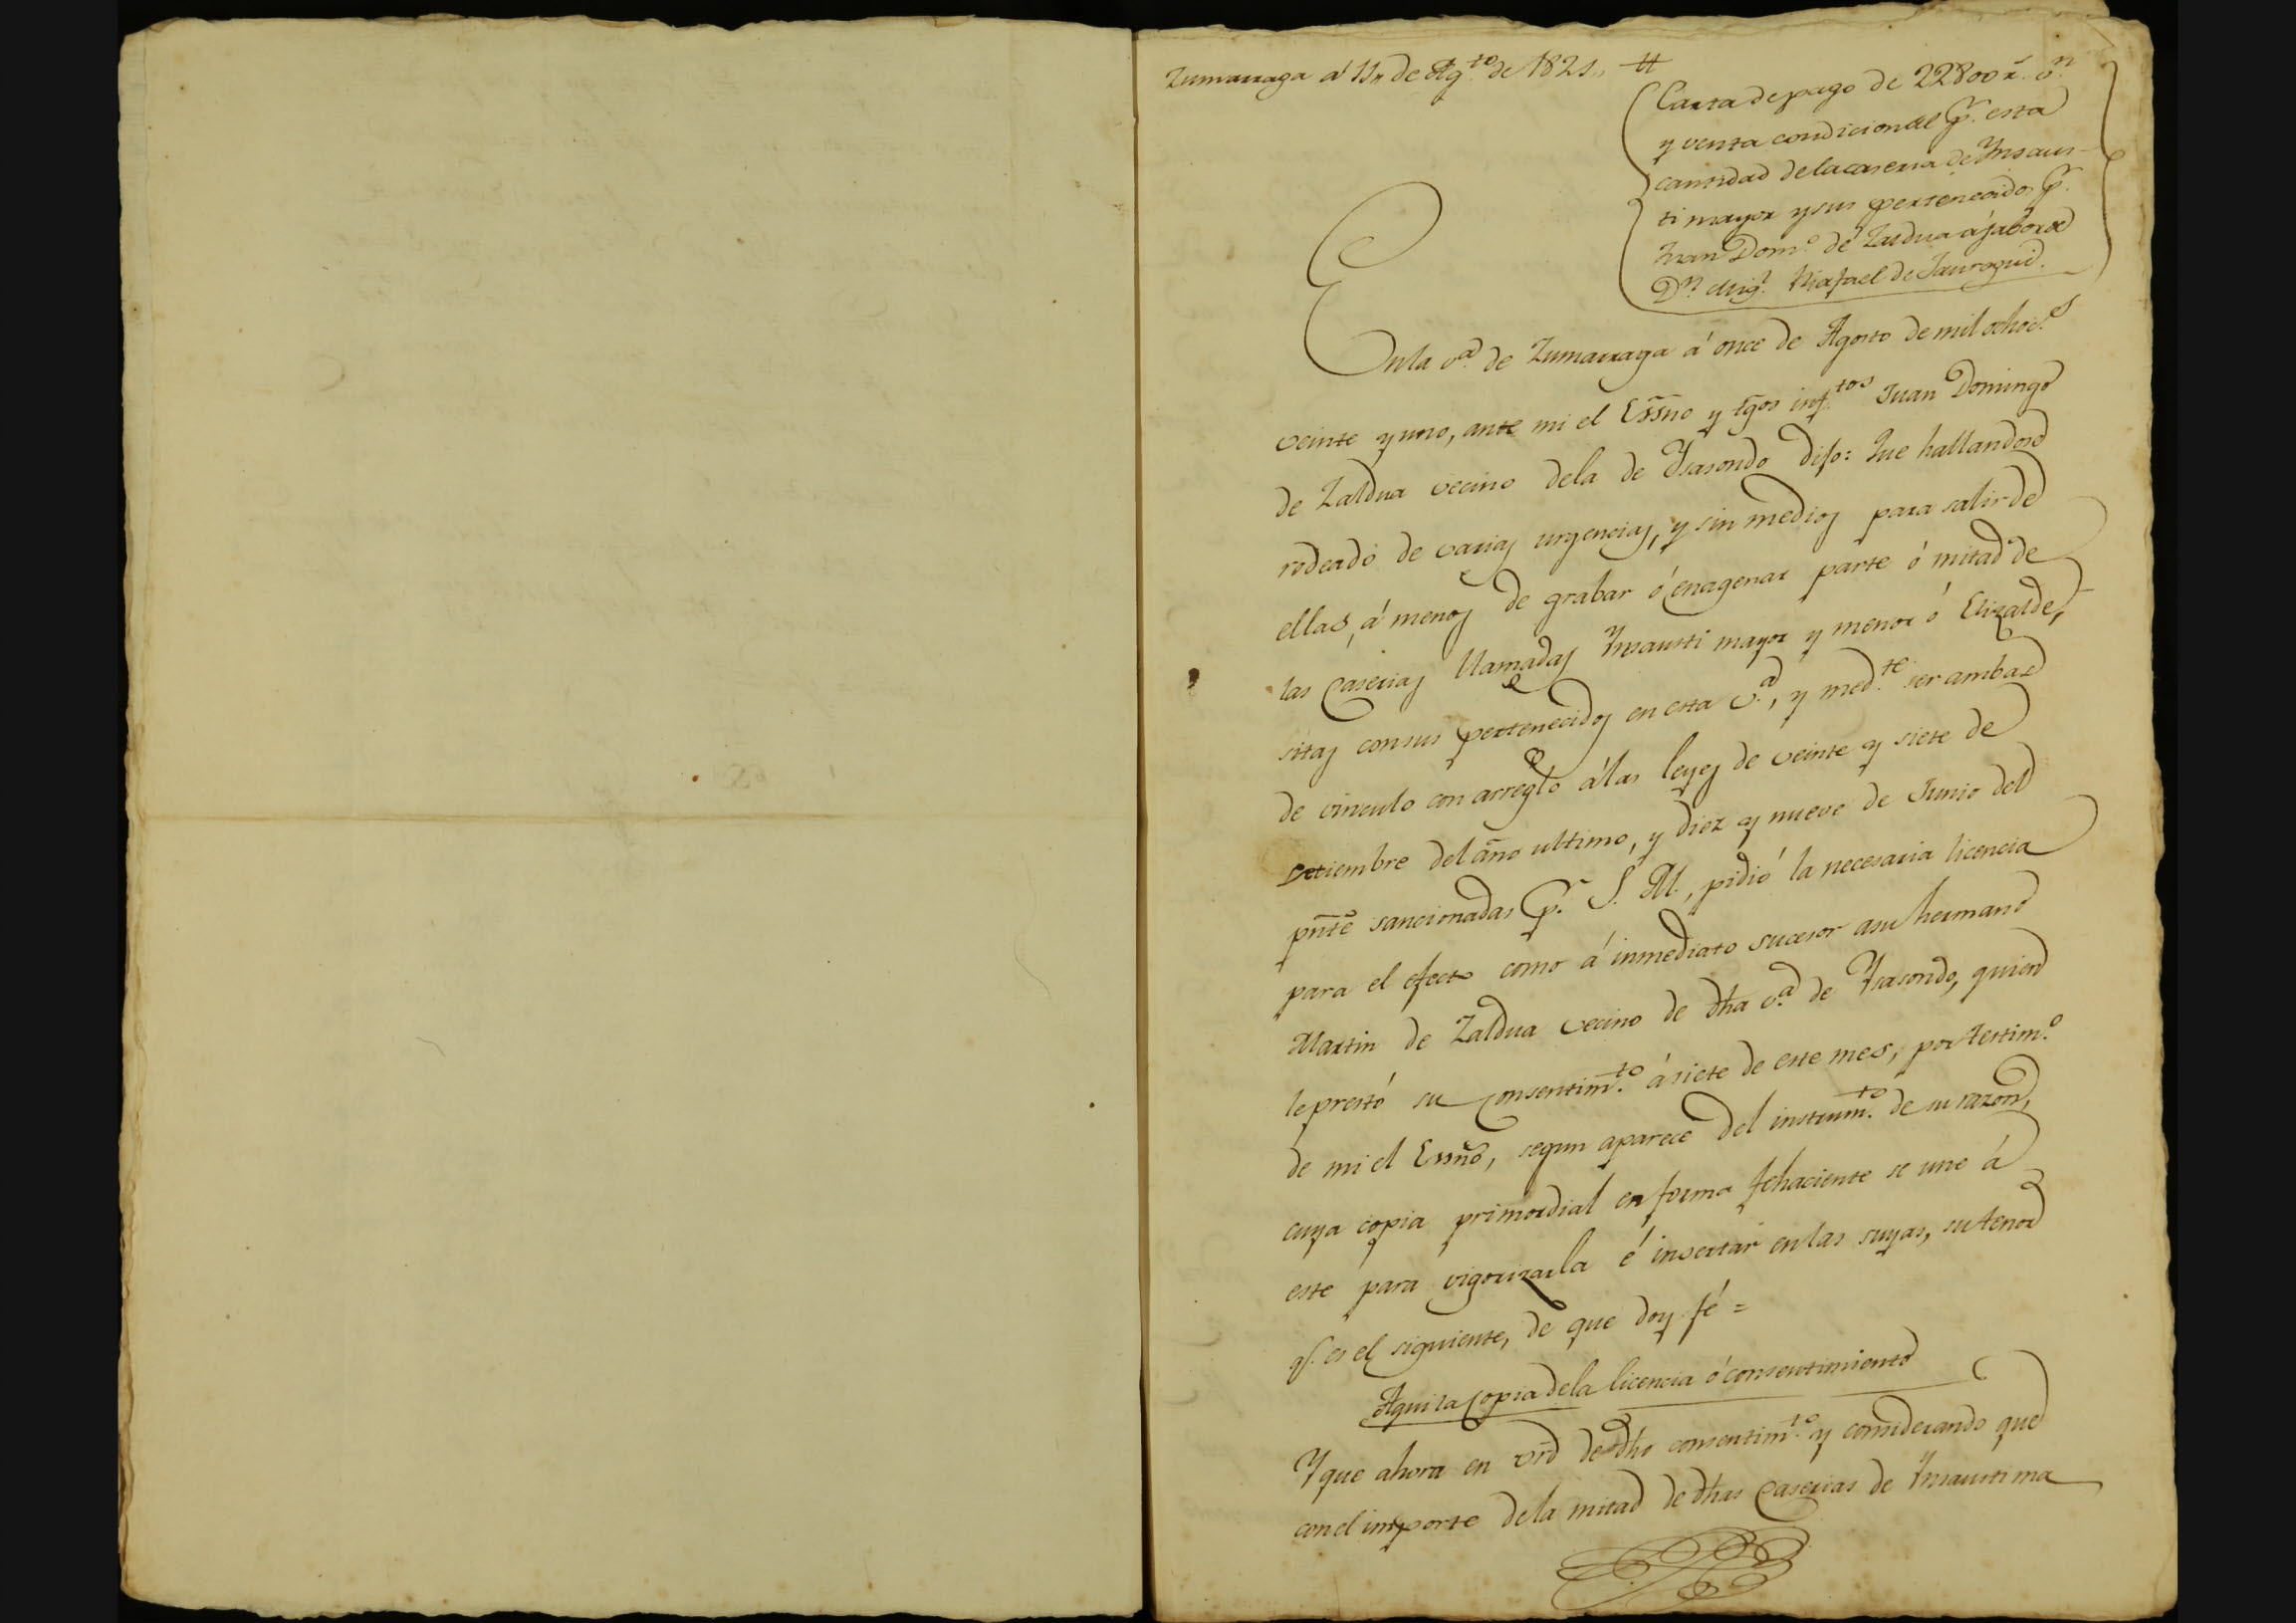 Zumarraga á 11,, de Ag.to de 1821,, #
Carta de pago de 22800 r.s v.n
y venta condicional p.r esta
cantidad de la caseria de Ynsaus-
ti mayor y sus pertenecidos p.r
Juan Dom.o de Zaldua á fabor de
D.n Mig.l Rafael de Jauregui.
En la v.a de Zumarraga á once de Agosto de mil ochoc.s
veinte y uno, ante mi el Essno y tgos inf.tos Juan Domingo
de Zaldua vecino dela de Ysasondo dijo: Que hallandose
rodeado de varias urgencias, y sin medios para salir de
ellas, á menos de grabar ó enagenar parte ó mitad de
las Caserias llamadas Ynsausti mayor y menor ó Elizalde,
sitas con sus pertenecidos en esta v.a, y med.te ser ambas
de vinculo con arreglo á las leyes de veinte y siete de
Setiembre del año ultimo, y diez y nueve de Junio del
pnte sancionadas p.r S. M., pidió la necesaria licencia
para el efecto como á inmediato sucesor a su hermano
Martin de Zaldua vecino de dha v.a de Ysasondo, quien
le prestó su Consentim.to á siete de este mes, por testim.o
de mi el Essno, segun aparece del instrum.to de su razon,
cuya copia primordial en forma fehaciente se une á
este para vigorizarla é insertar en las suyas, su tenor
q.e es el siguiente, de que doy fé =
Aqui la Copia dela licencia ó consentimiento
Y que ahora en vrd de dho consentim.to y considerando que
con el importe dela mitad de dhas Caserias de Ynsausti ma